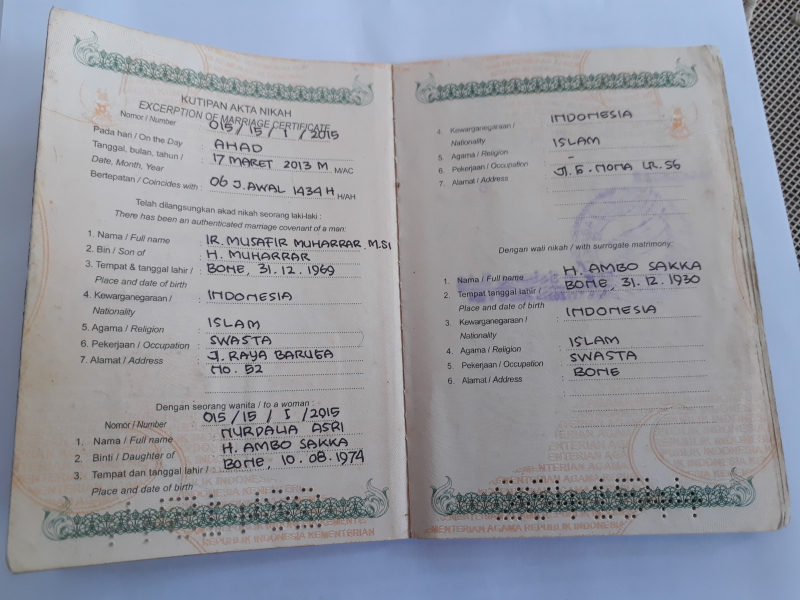 KUTIPAN AKTA NIKAH
EXCERPTION OF MARRIAGE CERTIFICATE
Nomor / Number 015 / 15 / I / 2015
Pada hari / On the Day : AHAD
Tanggal, bulan, tahun / : 17 MARET 2013 M M/AC
Date, Month, Year
Bertepatan / Coincides with : 06 J.AWAL 1434 H H/AH
Telah dilangsungkan akad nikah seorang laki-laki :
There has been an authenticated marriage covenant of a men:
1. Nama / Full name : IR. MUSAFIR MUHARRAR, M.SI
2. Bin / Son of : H. MUHARRAR
3. Tempat & tanggal lahir / : BONE, 31.12.1969
Place and date of birth
4. Kewarganegaraan / : INDONESIA
Nationality
5. Agama / Religion : ISLAM
6. Pekerjaan / Occupation : SWASTA
7. Alamat / Address : J. RAYA BARUGA
NO. 52
Dengan seorang wanita / to a woman :
Nomor / Number 015 / 15 / I / 2015
1. Nama / Full name : NURDALIA ASRI
2. Binti / Daughter of : H. AMBO SAKKA
3. Tempat dan tanggal lahir / : BONE, 10.08.1974
Place and date of birth
4. Kewarganegaraan / : INDONESIA
Nationality
5. Agama / Religion : ISLAM
6. Pekerjaan / Occupation : -
7. Alamat / Address : LR. 56
Dengan wali nikah / with surrogate matrimony:
1. Nama / Full name : H. AMBO SAKKA
2. Tempat tanggal lahir / : BONE, 31.12.1930
Place and date of birth
3. Kewarganegaraan / : INDONESIA
Nationality
4. Agama / Religion : ISLAM
5. Pekerjaan / Occupation : SWASTA
6. Alamat / Address : BONE
KEMENTERIAN AGAMA REPUBLIK INDONESIA